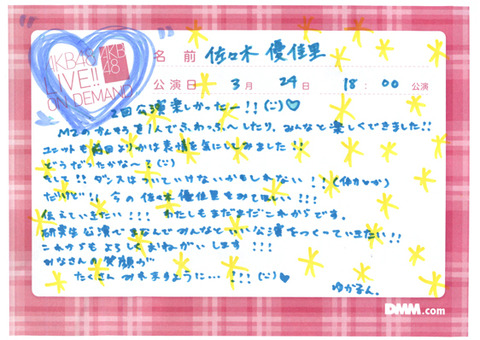 AKB48
LIVE!!
ON DEMAND
AKB
48
名 前 佐々木 優佳里
公演日 3月 24日 18:00 公演
2回公演楽しかったー!!(¨)♡
M2のかんそうを1人でふわっふ〜したり、みんなと楽しくできました!!
ユニットも前回よりかは表情を気にしてみました!!
どうだったかなー?(¨)
そして!!ダンスはついていけないかもしれない!!
だけど!!今の佐々木優佳里をみてほしい!!!
伝えていきたい!!!わたしもまだまだこれからです。
研究生公演でまなんでみんなといい公演をつくっていきたい!!
これからもよろしくおねがいします!!!
みなさんの笑顔が
たくさんみれますように…!!!(¨)♥
ゆかるん。
DMM.com